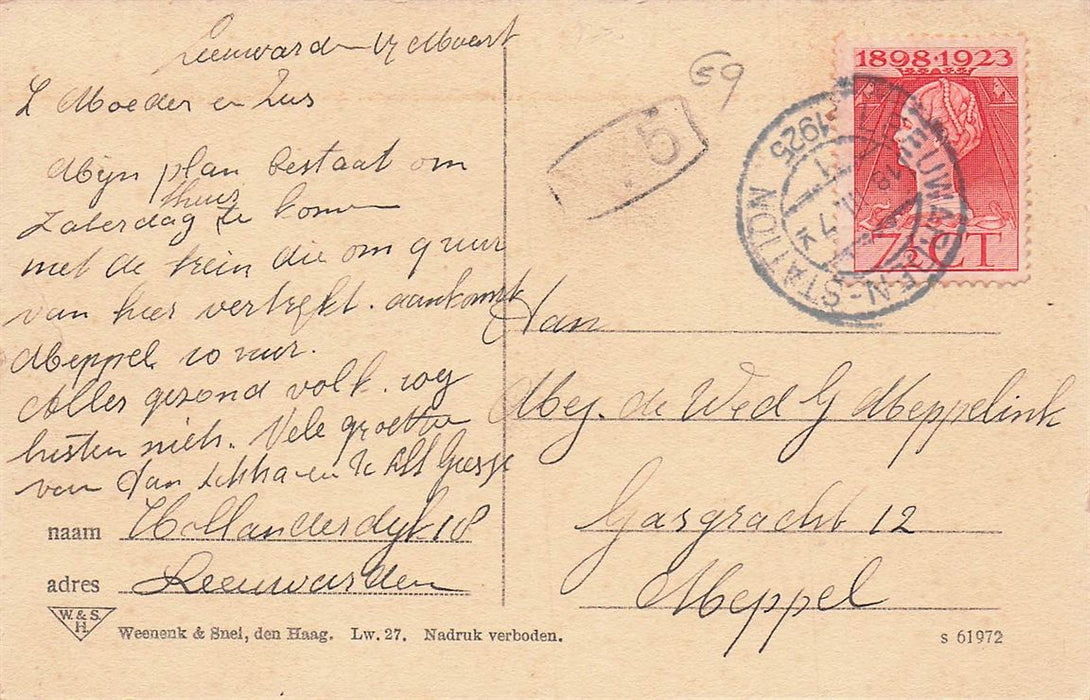 Leeuwarden 17 Maart
L Moeder en Zus
Mijn plan bestaat om
thuis
Zaterdag te komen
met de trein die om 9 uur
van hier vertrekt. aankomst
Meppel 10 uur.
Alles gezond volk. nog
niets. Vele groeten
van Jan
naam Hollanderdyk 18
adres Leeuwarden
W. & S.
H.
Weenenk & Snel, den Haag. Lw. 27. Nadruk verboden.
59
5
1898·1923
7½ CT
LEEUWARDEN-STATION
1925
Aan
Mej. de Wed G Meppelink
Gasgracht 12
Meppel
s 61972